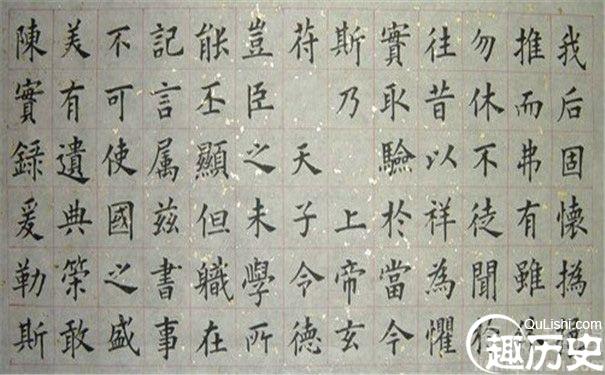 我后固懷撝
推而弗有雖
勿休不徒聞於
往昔以祥為懼
實取驗於當今
斯乃 上帝玄
苻 天子令德
豈臣之末學所
能丕顯但職在
記言属茲書事
不可使國之盛
美有遺典策敢
陳實録爰勒斯
QuLishi.com
趣历史